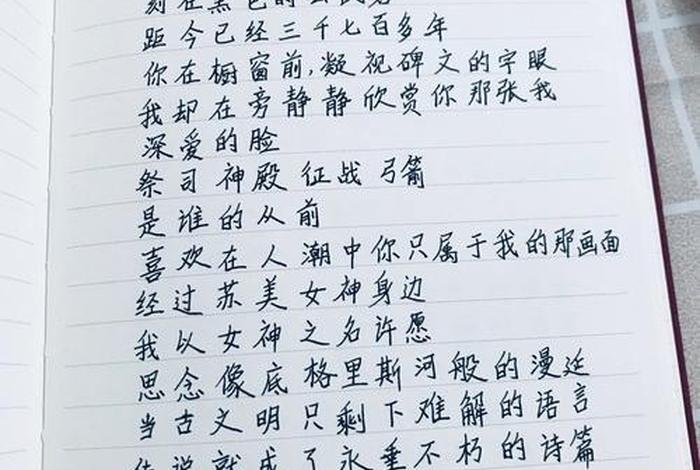 刻在黑色的玄武岩
距今已经三千七百多年
你在橱窗前,凝视碑文的字眼
我却在旁静静欣赏你那张我
深爱的脸
祭司神殿征战弓箭
是谁的从前
喜欢在人潮中你只属于我的那画面
经过苏美女神身边
我以女神之名许愿
思念像底格里斯河般的漫延
当古文明只剩下难解的语言
传说就成了永垂不朽的诗篇